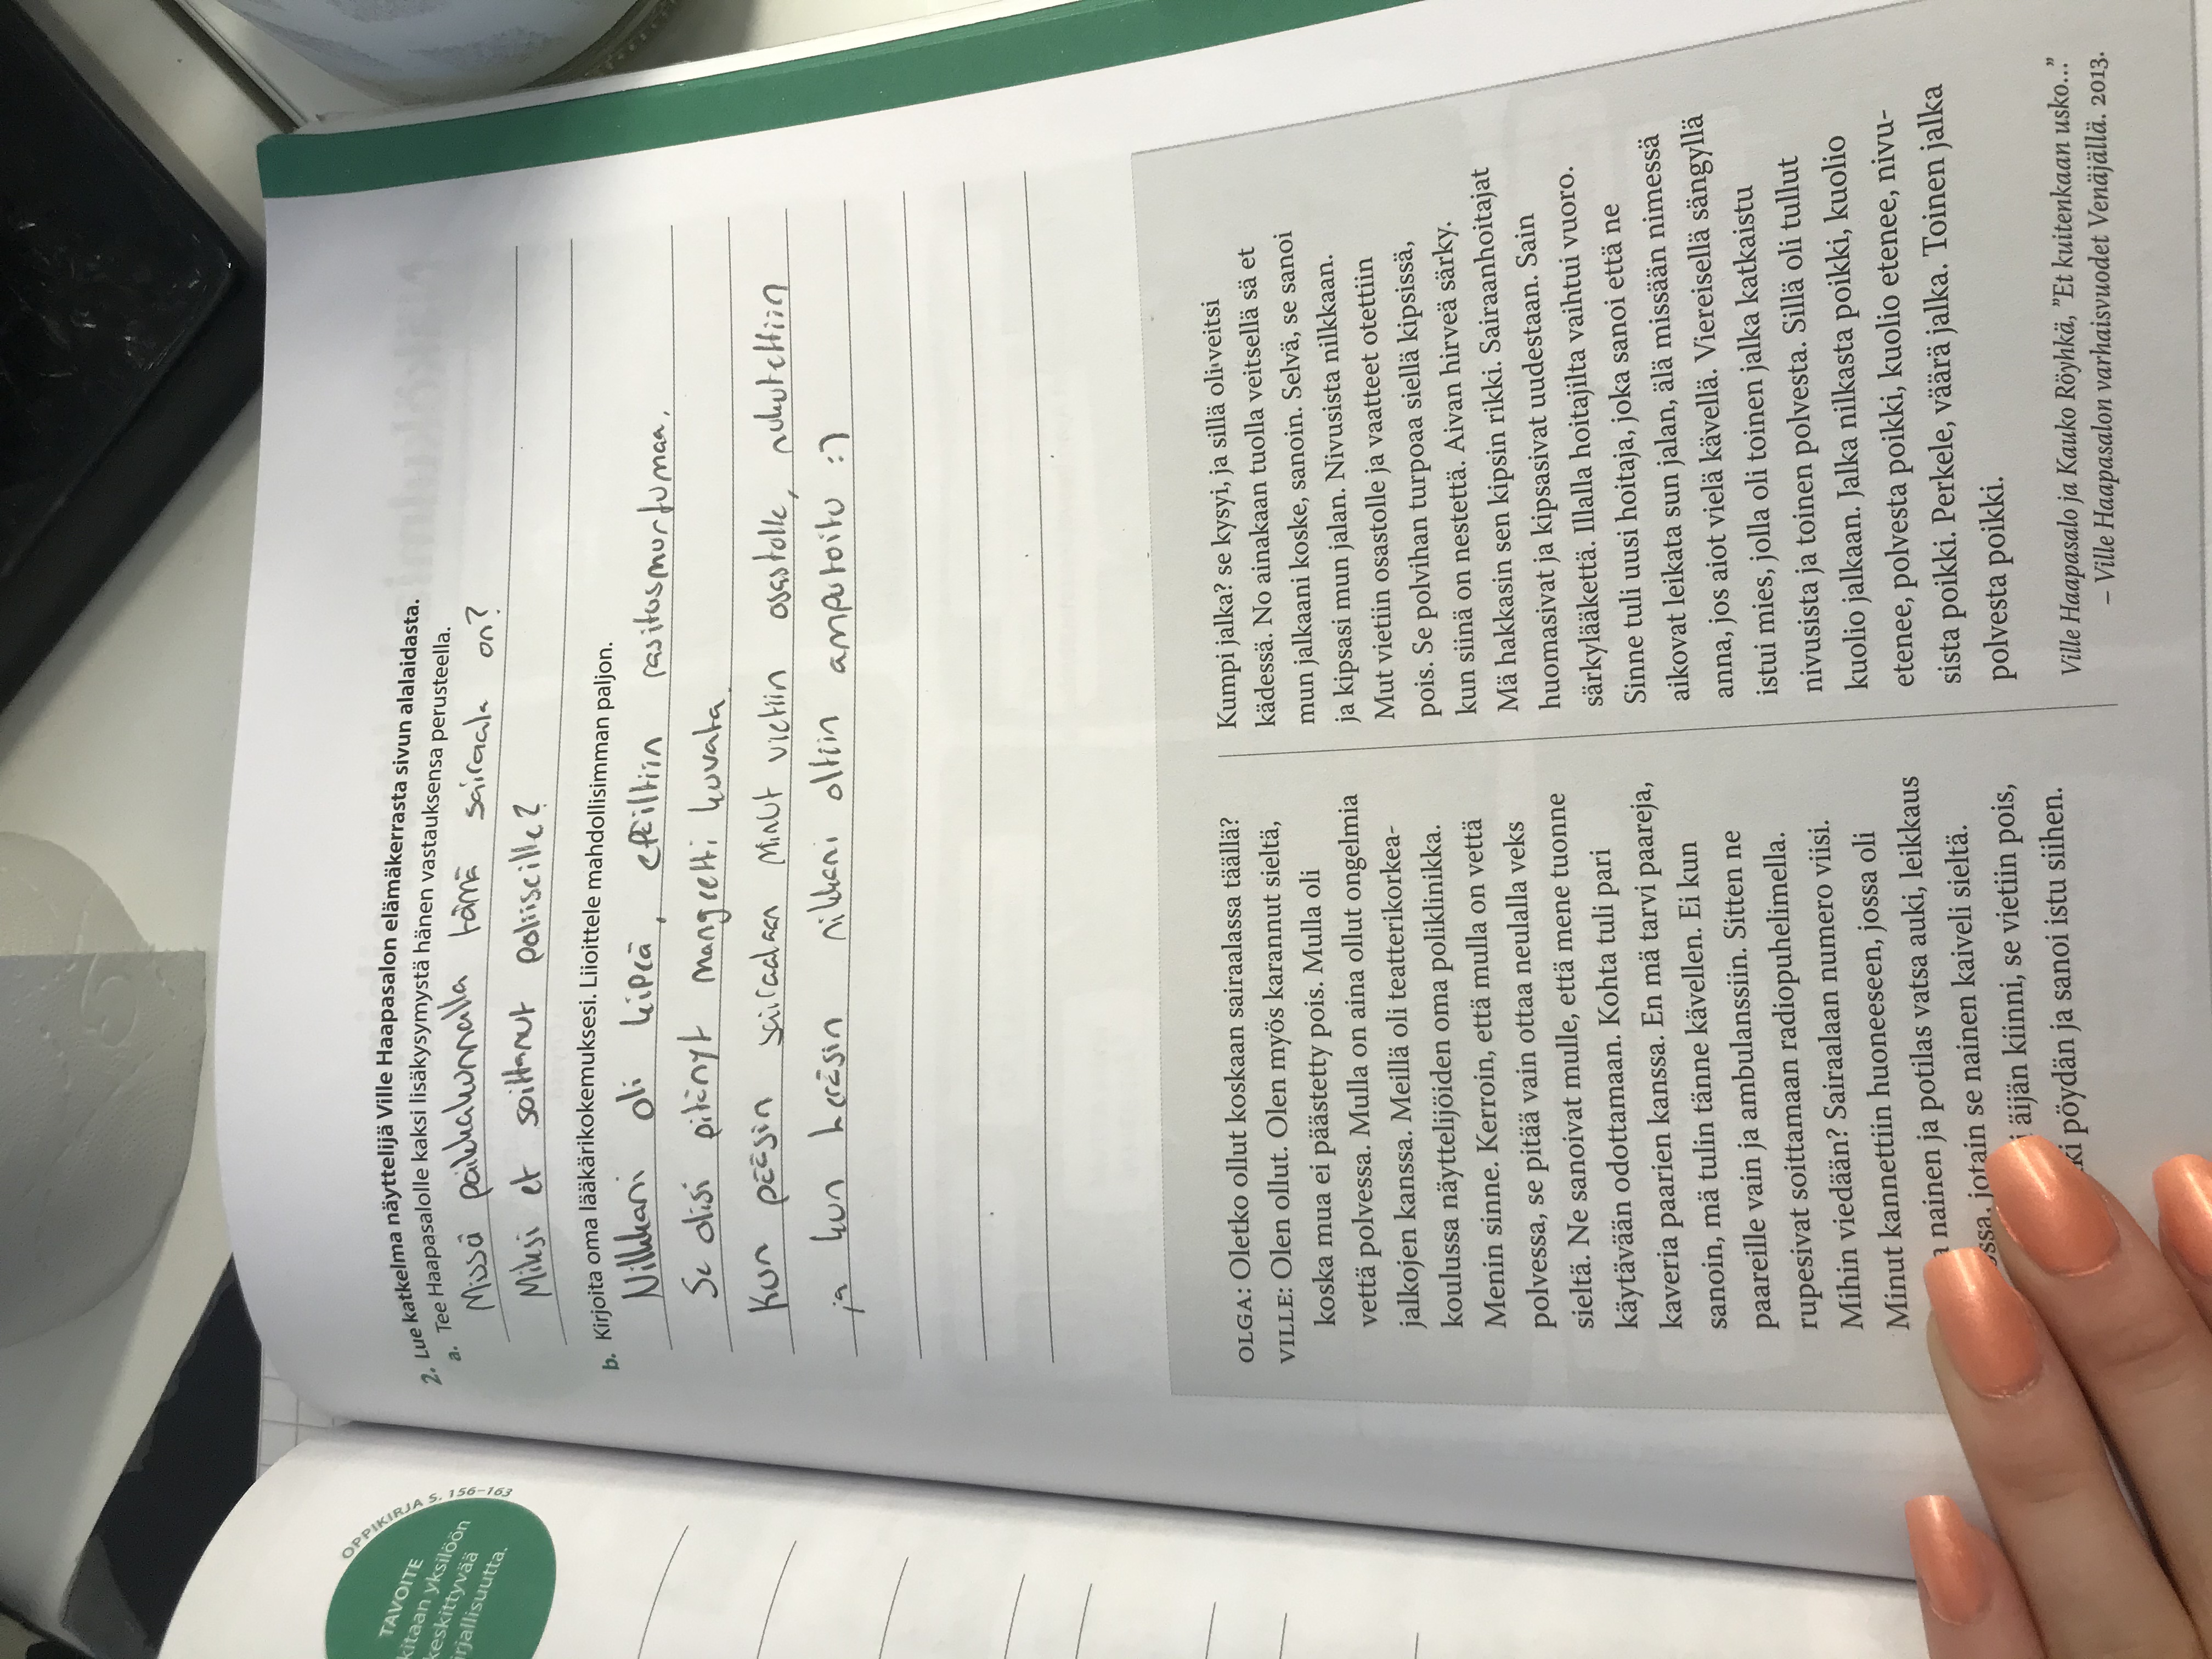 2. Lue katkelma näyttelijä Ville Haapasalon elämäkerrasta sivun alalaidasta.
a. Tee Haapasalolle kaksi lisäkysymystä hänen vastauksensa perusteella.
Missä paikkakunnalla tämä sairaala on?
Miksi et soittanut poliiseille?
b. Kirjoita oma lääkärikokemuksesi. Liioittele mahdollisimman paljon.
Nilkkani oli kipeä, epäiltiin rasitusmurtumaa,
Se olisi pitänyt mangeetti kuvata.
Kun pääsin sairaalaan minut vietiin osastolle, nukutettiin
ja kun heräsin nilkkani oltiin amputoitu :)
OLGA: Oletko ollut koskaan sairaalassa täällä?
VILLE: Olen ollut. Olen myös karannut sieltä,
koska mua ei päästetty pois. Mulla oli
vettä polvessa. Mulla on aina ollut ongelmia
jalkojen kanssa. Meillä oli teatterikorkea-
koulussa näyttelijöiden oma poliklinikka.
Menin sinne. Kerroin, että mulla on vettä
polvessa, se pitää vain ottaa neulalla veks
sieltä. Ne sanoivat mulle, että mene tuonne
käytävään odottamaan. Kohta tuli pari
kaveria paarien kanssa. En mä tarvi paareja,
sanoin, mä tulin tänne kävellen. Ei kun
paareille vain ja ambulanssiin. Sitten ne
rupesivat soittamaan radiopuhelimella.
Mihin viedään? Sairaalaan numero viisi.
Minut kannettiin huoneeseen, jossa oli
nainen ja potilas vatsa auki, leikkaus
jotain se nainen kaiveli sieltä.
äijän kiinni, se vietiin pois,
pöydän ja sanoi istu siihen.
Kumpi jalka? se kysyi, ja sillä oli veitsi
kädessä. No ainakaan tuolla veitsellä sä et
mun jalkaani koske, sanoin. Selvä, se sanoi
ja kipsasi mun jalan. Nivusista nilkkaan.
Mut vietiin osastolle ja vaatteet otettiin
pois. Se polvihan turpoaa siellä kipsissä,
kun siinä on nestettä. Aivan hirveä särky.
Mä hakkasin sen kipsin rikki. Sairaanhoitajat
huomasivat ja kipsasivat uudestaan. Sain
särkylääkettä. Illalla hoitajilta vaihtui vuoro.
Sinne tuli uusi hoitaja, joka sanoi että ne
aikovat leikata sun jalan, älä missään nimessä
anna, jos aiot vielä kävellä. Viereisellä sängyllä
istui mies, jolla oli toinen jalka katkaistu
nivusista ja toinen polvesta. Sillä oli tullut
kuolio jalkaan. Jalka nilkasta poikki, kuolio
etenee, polvesta poikki, kuolio etenee, nivu-
sista poikki. Perkele, väärä jalka. Toinen jalka
polvesta poikki.
Ville Haapasalo ja Kauko Röyhkä, ”Et kuitenkaan usko...”
– Ville Haapasalon varhaisvuodet Venäjällä. 2013.
OPPIKIRJA S. 156–163
TAVOITE
yksilöön
keskittyvää